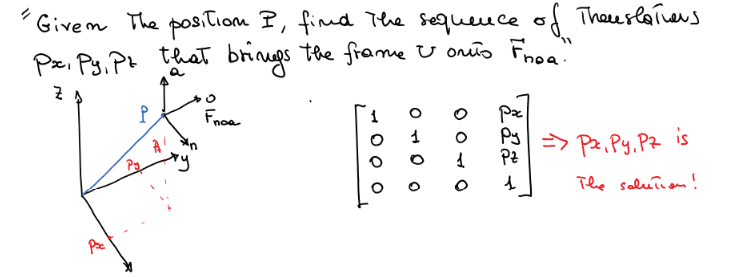 "Given The position P, find The sequence of Translations
Px, Py, Pz that brings the frame U onto Fnoa."
z
a
P
o
Fnoa
n
A
y
Py
Px
1 0 0 Px
0 1 0 Py
0 0 1 Pz
0 0 0 1
=> Px, Py, Pz is
The solution!